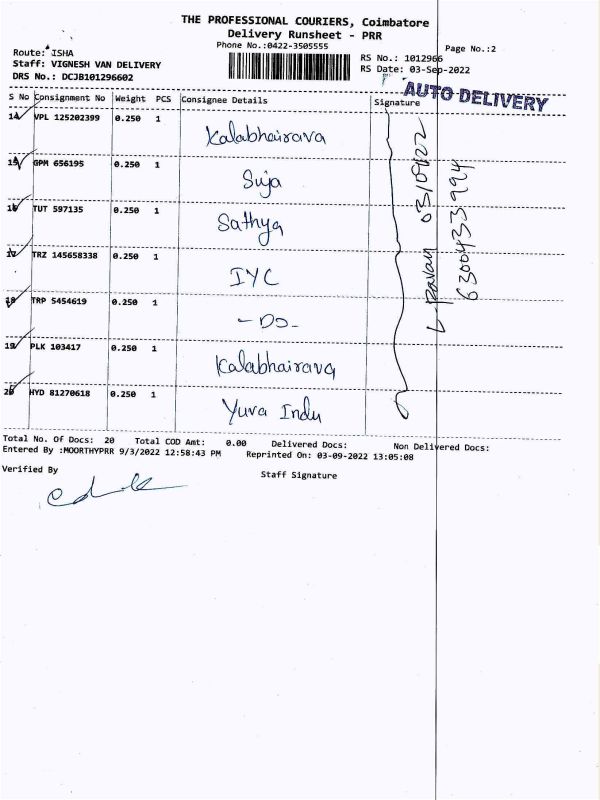 THE PROFESSIONAL COURIERS, Coimbatore
Delivery Runsheet - PRR
Phone No.:0422-3505555
Page No.:2
Route: ISHA
Staff: VIGNESH VAN DELIVERY
DRS No.: DCJB101296602
RS No.: 1012966
RS Date: 03-Sep-2022
AUTO DELIVERY
S No Consignment No Weight PCS Consignee Details Signature
14 VPL 125202399 0.250 1 Kalabhairava
15 GPM 656195 0.250 1 Suja
16 TUT 597135 0.250 1 Sathya
17 TRZ 145658338 0.250 1 IYC
18 TRP 5454619 0.250 1 - DO -
19 PLK 103417 0.250 1 Kalabhairava
20 HYD 81270618 0.250 1 Yuva Indu
L. Pavan 03/09/22
6300433994
Total No. Of Docs: 20 Total COD Amt: 0.00 Delivered Docs: Non Delivered Docs:
Entered By :MOORTHYPRR 9/3/2022 12:58:43 PM Reprinted On: 03-09-2022 13:05:08
Verified By
Staff Signature